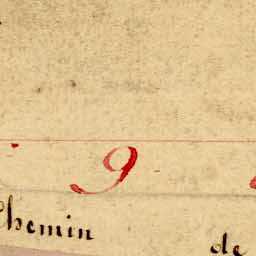 9
Chemin de